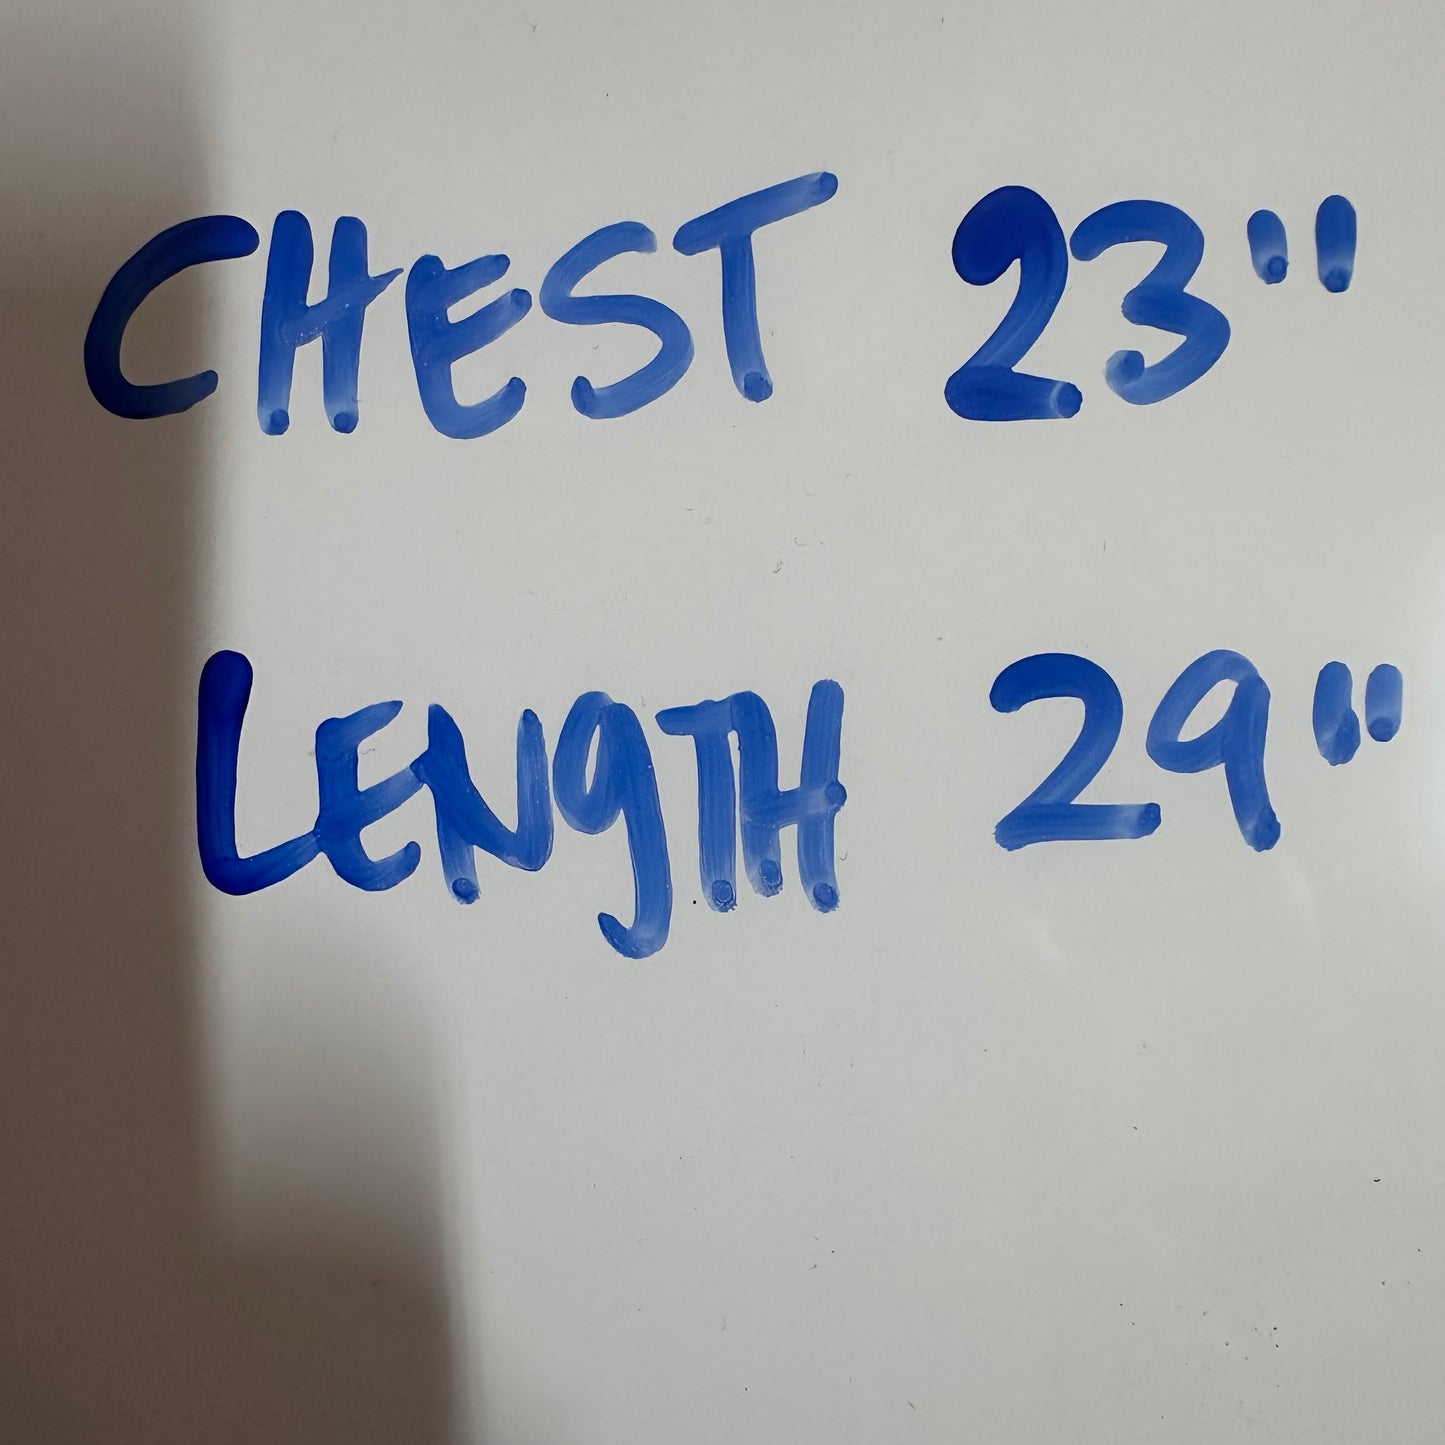 CHEST 23"
LENgTH 29"